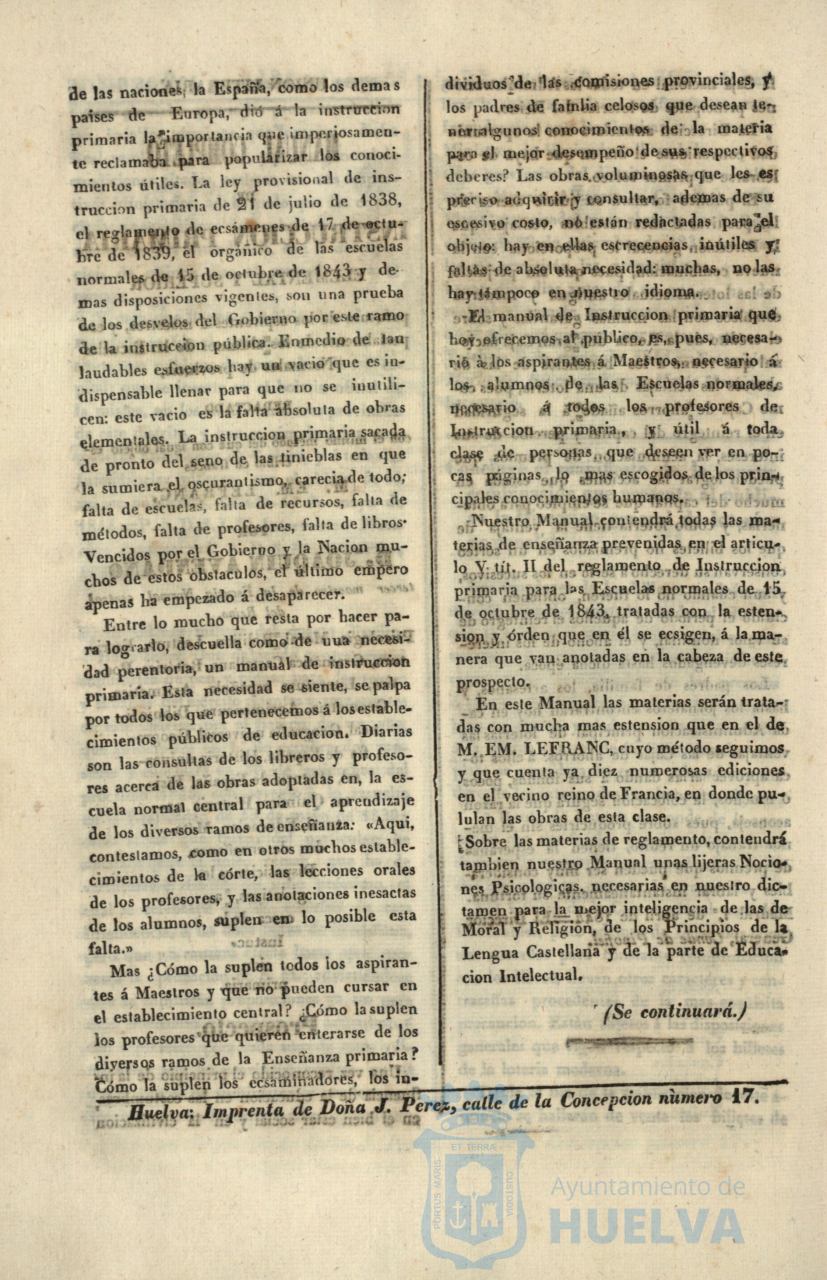 de las naciones, la España, como los demas
paises de Europa, dió á la instruccion
primaria la importancia que imperiosamen-
te reclamaba para popularizar los conoci-
mientos útiles. La ley provisional de ins-
truccion primaria de 21 de julio de 1838,
el reglamento de ecsámenes de 17 de octu-
bre de 1839, el orgánico de las escuelas
normales de 15 de octubre de 1843 y de-
mas disposiciones vigentes, son una prueba
de los desvelos del Gobierno por este ramo
de la instruccion pública. Enmedio de tan
laudables esfuerzos hay un vacio que es in-
dispensable llenar para que no se inutili-
cen: este vacio es la falta absoluta de obras
elementales. La instruccion primaria sacada
de pronto del seno de las tinieblas en que
la sumiera el oscurantismo, carecia de todo;
falta de escuelas, falta de recursos, falta de
métodos, falta de profesores, falta de libros.
Vencidos por el Gobierno y la Nacion mu-
chos de estos obstaculos, el último empero
apenas ha empezado á desaparecer.
Entre lo mucho que resta por hacer pa-
ra lograrlo, descuella como de una necesi-
dad perentoria, un manual de instruccion
primaria. Esta necesidad se siente, se palpa
por todos los que pertenecemos á los estable-
cimientos públicos de educacion. Diarias
son las consultas de los libreros y profeso-
res acerca de las obras adoptadas en, la es-
cuela normal central para el aprendizaje
de los diversos ramos de enseñanza: «Aqui,
contestamos, como en otros muchos estable-
cimientos de la córte, las lecciones orales
de los profesores, y las anotaciones inesactas
de los alumnos, suplen en lo posible esta
falta.»
Mas ¿Cómo la suplen todos los aspiran-
tes á Maestros y que no pueden cursar en
el establecimiento central? ¿Cómo la suplen
los profesores que quieren enterarse de los
diversos ramos de la Enseñanza primaria?
Cómo la suplen los ecsaminadores, los in-
dividuos de las comisiones provinciales, y
los padres de familia celosos que desean te-
ner algunos conocimientos de la materia
para el mejor desempeño de sus respectivos
deberes? Las obras voluminosas que les es
preciso adquirir y consultar, ademas de su
escesivo costo, no están redactadas para el
objeto: hay en ellas escrecencias inútiles y
faltas de absoluta necesidad: muchas, no las
hay tampoco en nuestro idioma.
El manual de Instruccion primaria que
hoy ofrecemos al público, es, pues, necesa-
rio á los aspirantes á Maestros, necesario á
los alumnos de las Escuelas normales,
necesario á todos los profesores de
Instruccion primaria, y útil á toda
clase de personas, que deseen ver en po-
cas páginas lo mas escogidos de los prin-
cipales conocimientos humanos.
Nuestro Manual contendrá todas las ma-
terias de enseñanza prevenidas en el articu-
lo V. tit. II del reglamento de Instruccion
primaria para las Escuelas normales de 15
de octubre de 1843, tratadas con la esten-
sion y órden que en él se ecsigen, á la ma-
nera que van anotadas en la cabeza de este
prospecto.
En este Manual las materias serán trata-
das con mucha mas estension que en el de
M. EM. LEFRANC, cuyo método seguimos
y que cuenta ya diez numerosas ediciones
en el vecino reino de Francia, en donde pu-
lulan las obras de esta clase.
Sobre las materias de reglamento, contendrá
tambien nuestro Manual unas lijeras Nocio-
nes Psicologicas, necesarias en nuestro dic-
tamen para la mejor inteligencia de las de
Moral y Religion, de los Principios de la
Lengua Castellana y de la parte de Educa-
cion Intelectual.
(Se continuará.)
Huelva: Imprenta de Doña J. Perez, calle de la Concepcion nùmero 17.
ET TERRÆ
PORTUS MARIS
CUSTODIA
Ayuntamiento de
HUELVA